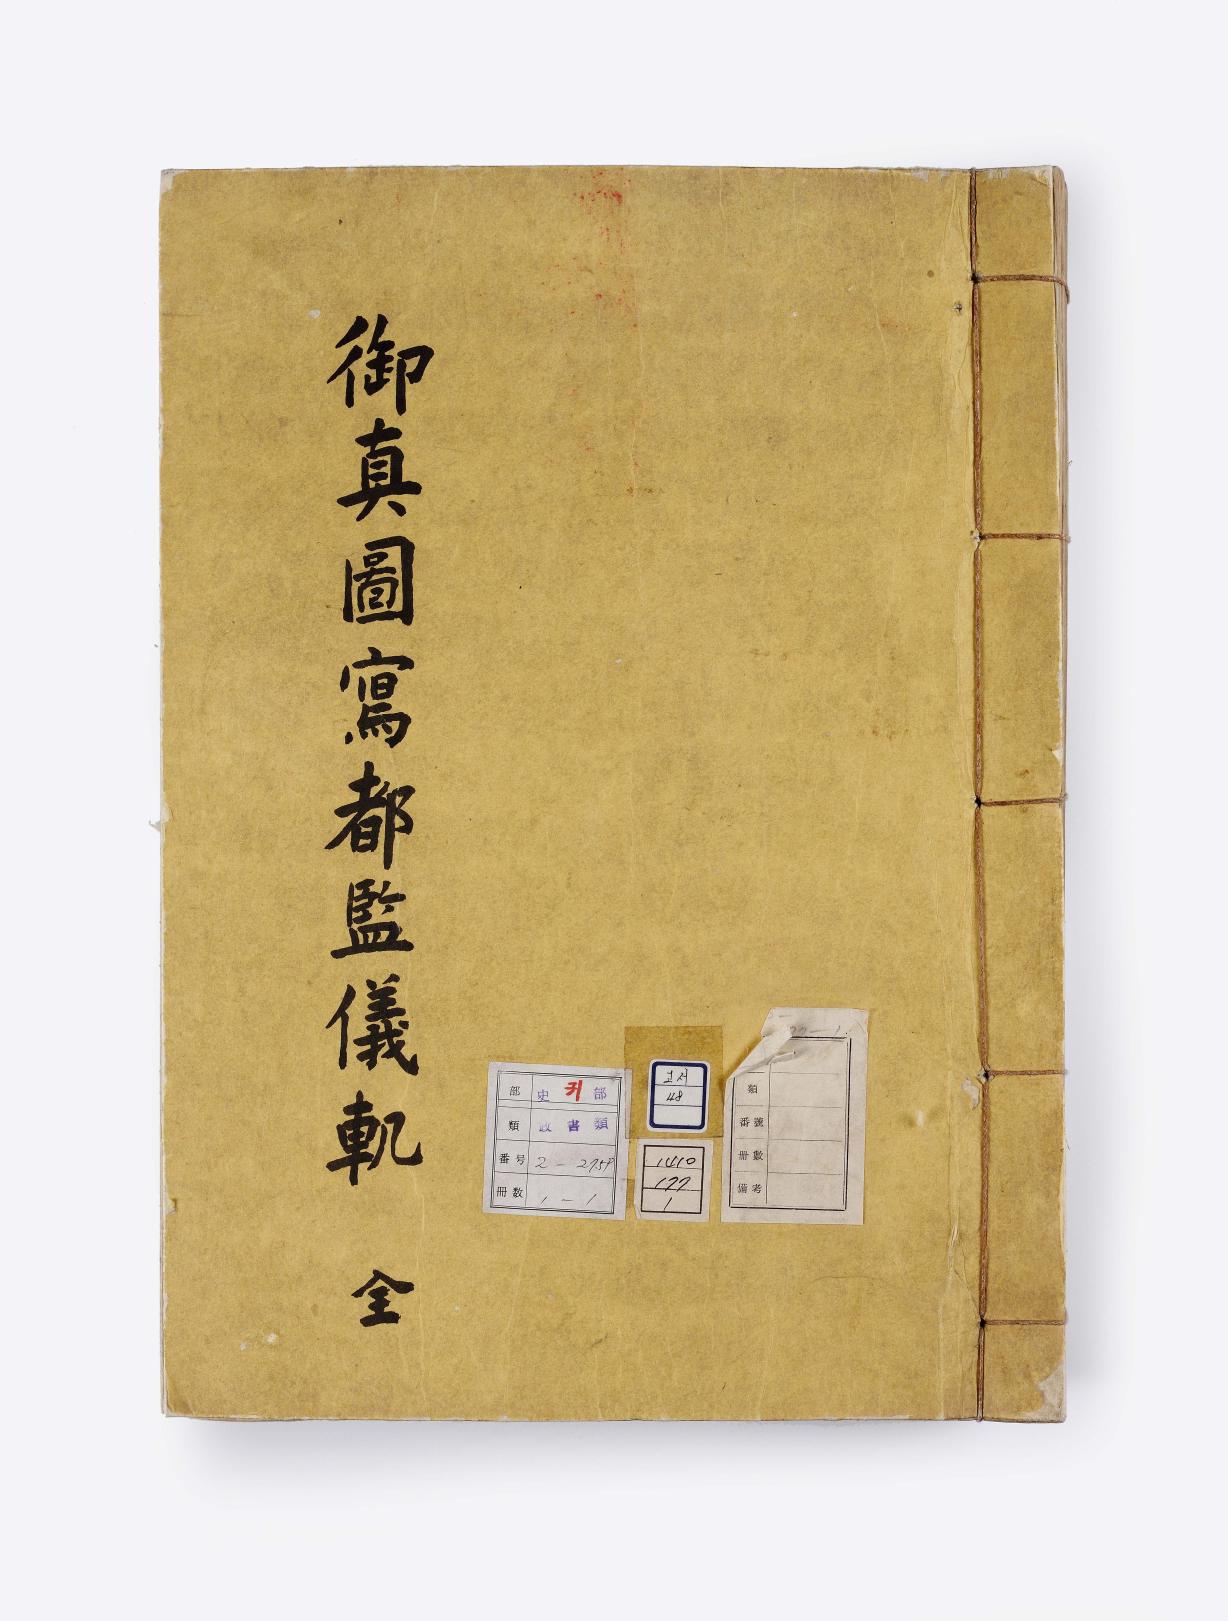 御真圖寫都監儀軌 全
部 史 귀 部
類 政書類
番号 2-2759
冊数 1-1
고서
48
1410
177
1
類
番號
冊數
備考